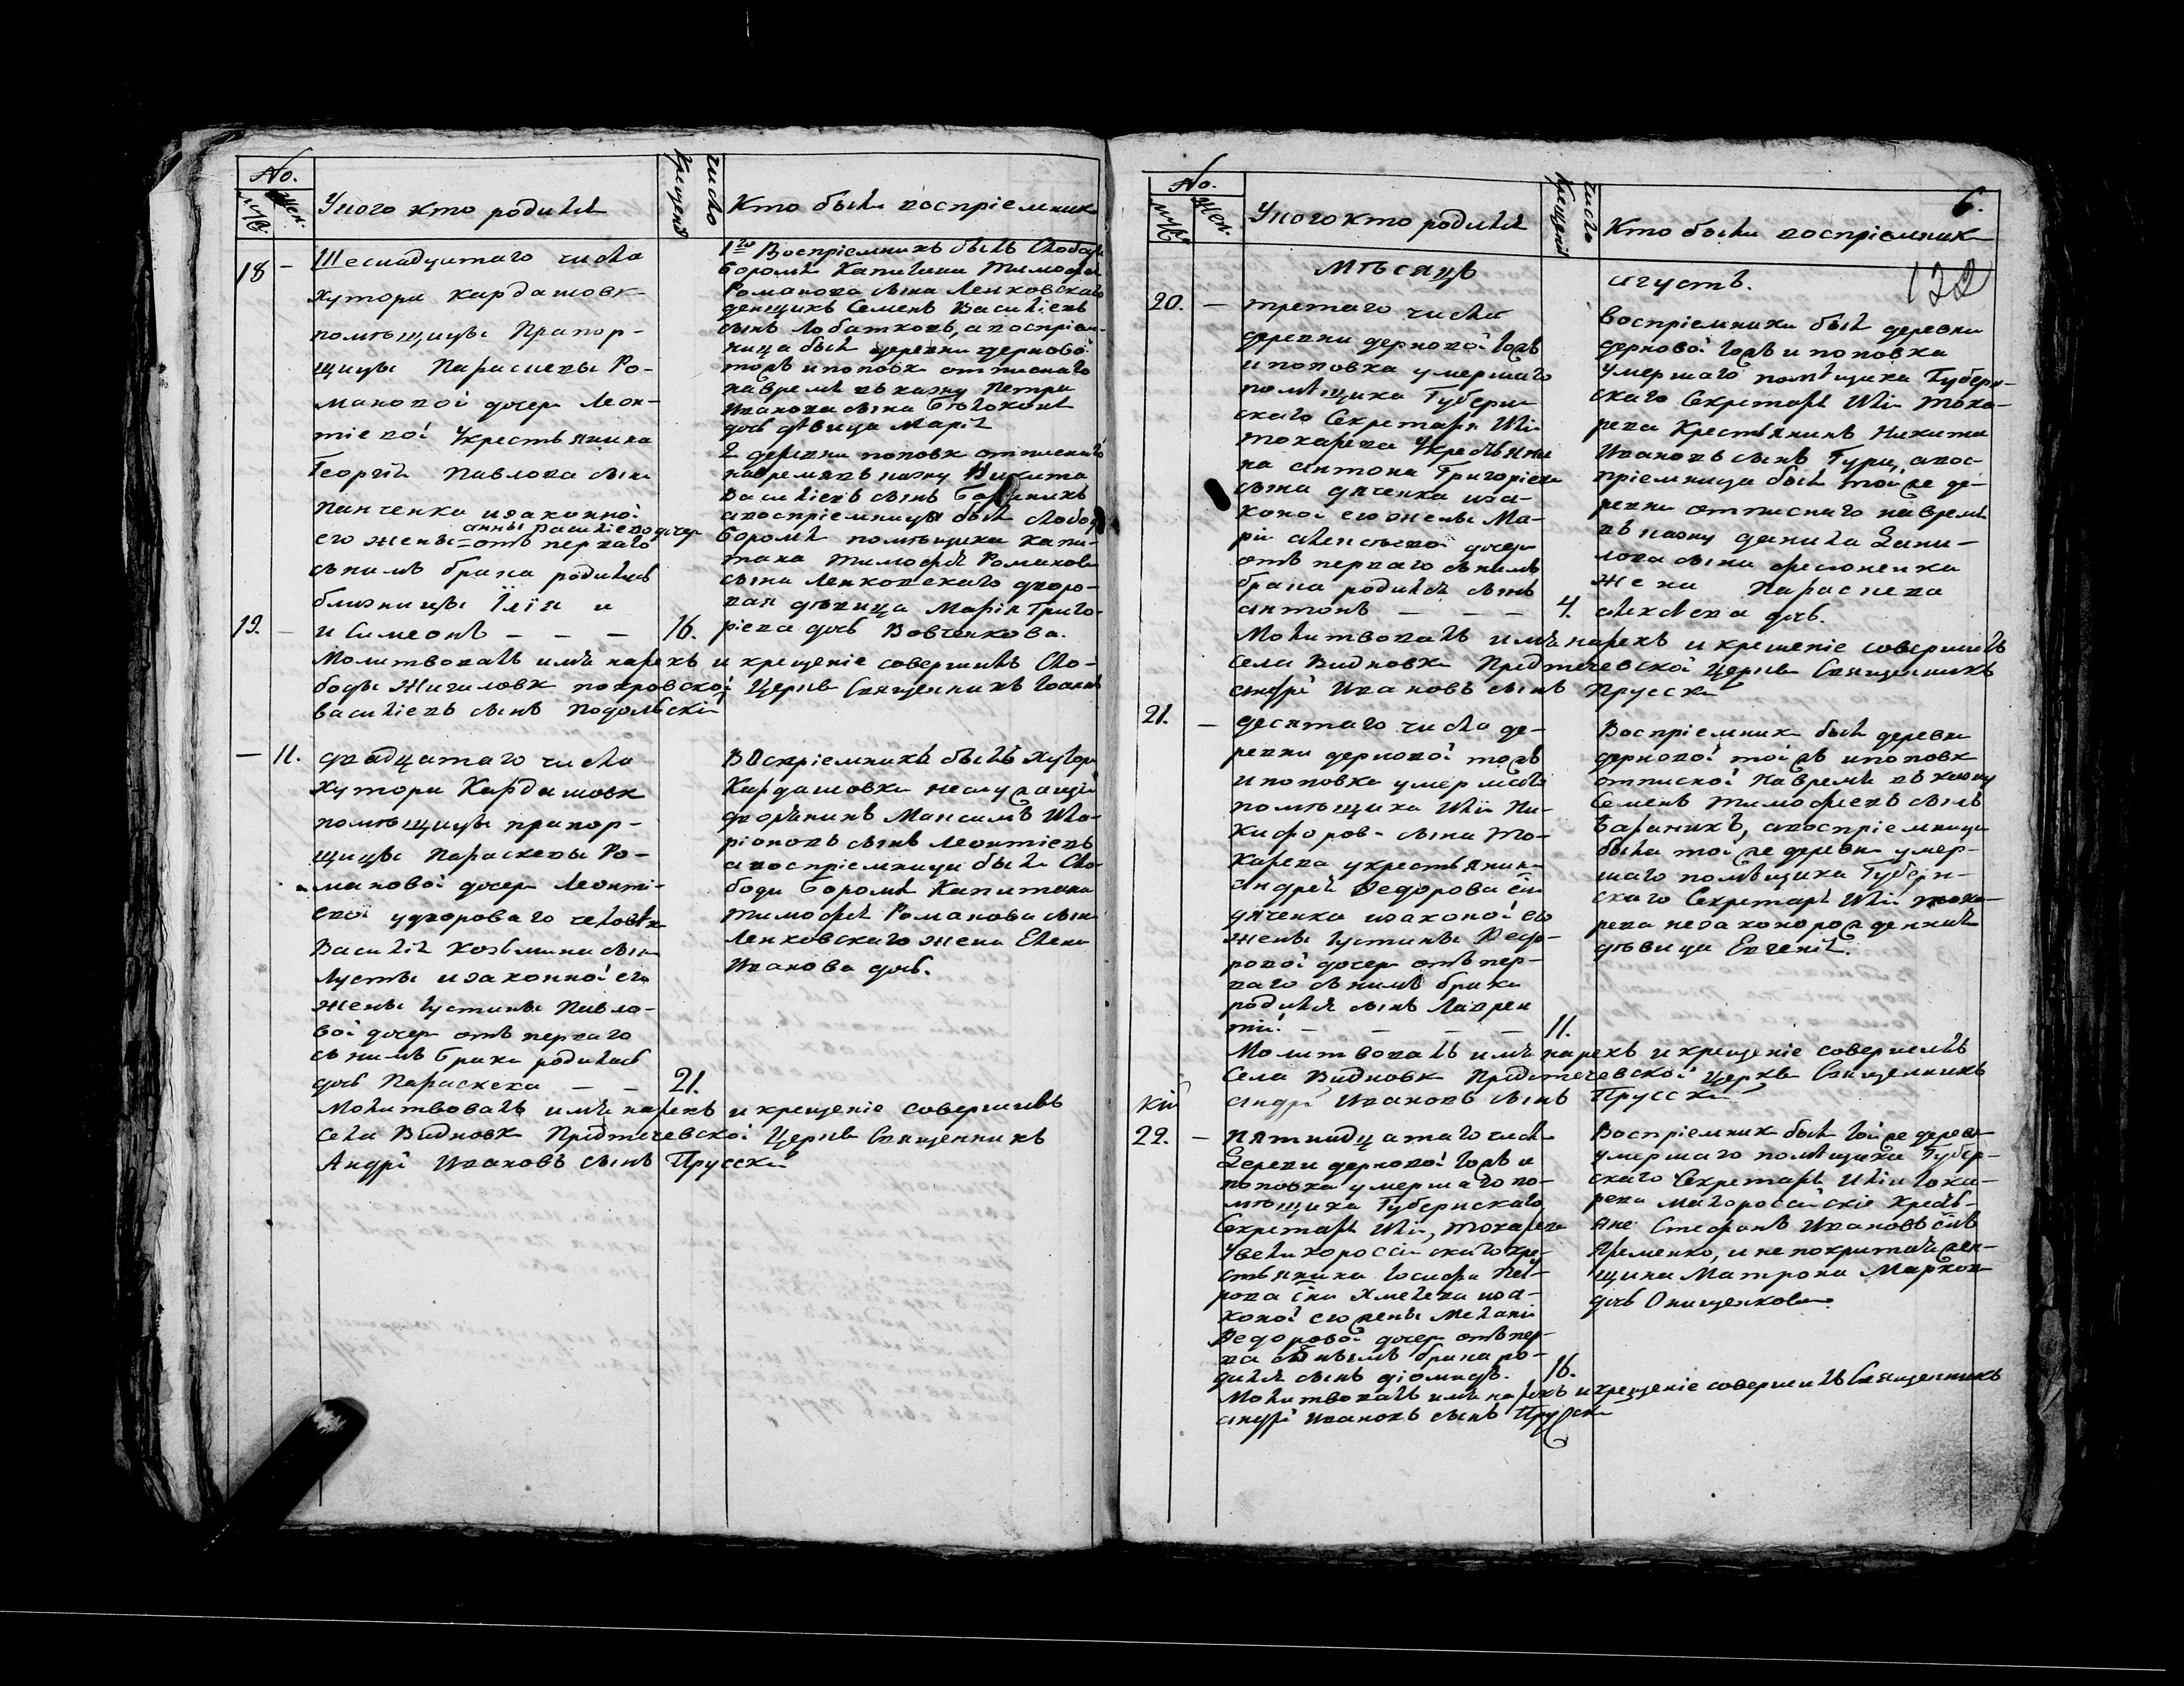 No.
муж.
жен.
У кого кто родился
число
крещенія
Кто были воспріемники
18 –
Шеснадцатаго числа
хутора Кардашовк
помѣщицы Прапор-
щицы Параскевы Ро-
мановой дочери Леон-
тіевой Укрестьянина
Георгія Павлова сына
Панченка изаконной
анны Васильевой дочери
его жены = отъ перваго
съ нимъ брака родились
близницы Ілія и
19. –
и Симеонъ – – – 16.
1го Воспріемникъ былъ слободы
Боромли Капитана Тимофея
Романова сына Ленковскаго
денщикъ Семенъ Васильевъ
сынъ Лобатковъ, а воспріем-
ница была деревни дерновой
тожъ и поповк отписнаго
навремя въ казну Петра
Иванова сына Бѣлоконя
дочь дѣвица Марія
2 деревни поповк отписнаго
навремя въ казну Никита
Васильевъ сынъ Бараникъ
а воспріемница была слободы
Боромли помѣщика капи-
тана Тимофея Романова
сына Ленковскаго дворо-
вая дѣвица Марія Григо-
ріева дочь Вовченкова.
Молитвовалъ имя нарекъ и крещеніе совершилъ Сло-
боды Жигиловк покровской Церкви Священникъ Іоаннъ
васильевъ сынъ Подольскій
– 11.
Двадцатаго числа
Хутора Кардашовк
помѣщицы прапор-
щицы Параскевы Ро-
мановой дочери Леонті-
евой удвороваго человѣка
Василія Козьмина сына
Густы изаконной его
жены Іустины Павло-
вой дочери отъ перваго
съ нимъ брака родилась
дочь Параскева – – 21.
Воспріемникъ былъ Хутора
Кардашовки неслужащій
дворянинъ Максимъ Ила-
ріоновъ сынъ Леонтіевъ
а воспріемница была Сло-
боды Боромли Капитана
Тимофея Романова сына
Ленковскаго жена Елена
Иванова дочь.
Молитвовалъ имя нарекъ и крещеніе совершилъ
Села Видновк Предтечевской Церкви Священникъ
Андрей Ивановъ сынъ Прусскій
6.
122
No.
муж.
жен.
У кого кто родился
число
крещенія
Кто были воспріемники
Мѣсяцъ августъ.
20. –
третаго числа
деревни дерновой тожъ
и поповка умершаго
помѣщика Губерн-
скаго Секретаря Иліи
токарева Укрестьяни-
на антона Григоріева
сына дяченка иза-
коной его жены Ма-
ріи алексѣевой дочери
отъ перваго съ нимъ
брака родился сынъ
антонъ – – – 4.
Воспріемники былъ деревни
дерновой тожъ и поповка
умершаго помѣщика Губерн-
скаго Секретаря Иліи Тока-
рева Крестьянинъ Никита
Ивановъ сынъ Гура, а вос-
пріемница была той же де-
ревни отписнаго навремя
въ казну данила Дани-
лова сына
жена Параскева
алексѣева дочь.
Молитвовалъ имя нарекъ и крещеніе совершилъ
села Видновк Предтечевской Церкви Священникъ
андрей Ивановъ сынъ Прусскій
21. –
десятаго числа де-
ревни дерновой тожъ
и поповка умершаго
помѣщика Иліи Ни-
кифорова сына То-
карева укрестьянина
андрея Федорова сына
дяченка изаконой его
жены Іустины Федо-
ровой дочери отъ пер-
ваго съ нимъ брака
родился сынъ Лаврен
тій. – – – – 11.
Воспріемникъ былъ деревни
дерновой тожъ и поповк
отписной навремя въ казну
Семенъ Тимофеевъ сынъ
Бараникъ, а воспріемница
была той же деревни умер-
шаго помѣщика Губерн-
скаго Секретаря Иліи Тока-
рева незаконорожденная
дѣвица Евгенія.
Молитвовалъ имя нарекъ и крещеніе совершилъ
Села Видновк Предтечевской церкви Священникъ
андрей Ивановъ сынъ Прусскій
кій
22. –
пятнадцатаго числа
Деревни дерновой тожъ и
поповка умершаго по-
мѣщика Губернскаго
Секретаря Иліи, Токарева
Увеликоросійскаго кре-
стьянина Іосифа Пет-
рова сына Хмелева иза-
коной его жены Меланіи
Федоровой дочери отъ пер-
ва съ нимъ брака ро-
дился сынъ діомидъ. 16.
Воспріемник былъ той же деревни
умершаго помѣщика Губер-
скаго Секретаря Иліи Тока-
рева малоросійскіе Кресть-
яне Стефанъ Ивановъ сынъ
Яременко, и непокритая жен-
щина Матрона Маркова
дочь Онищенкова.
Молитвовалъ имя нарекъ и крещеніе совершилъ Священникъ
андрей Ивановъ сынъ Прусскій